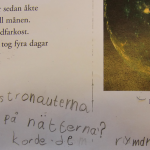 r sedan åkte
ll månen.
dfarkost.
tog fyra dagar
stronauterna
på nätterna?
korde de
rymdr